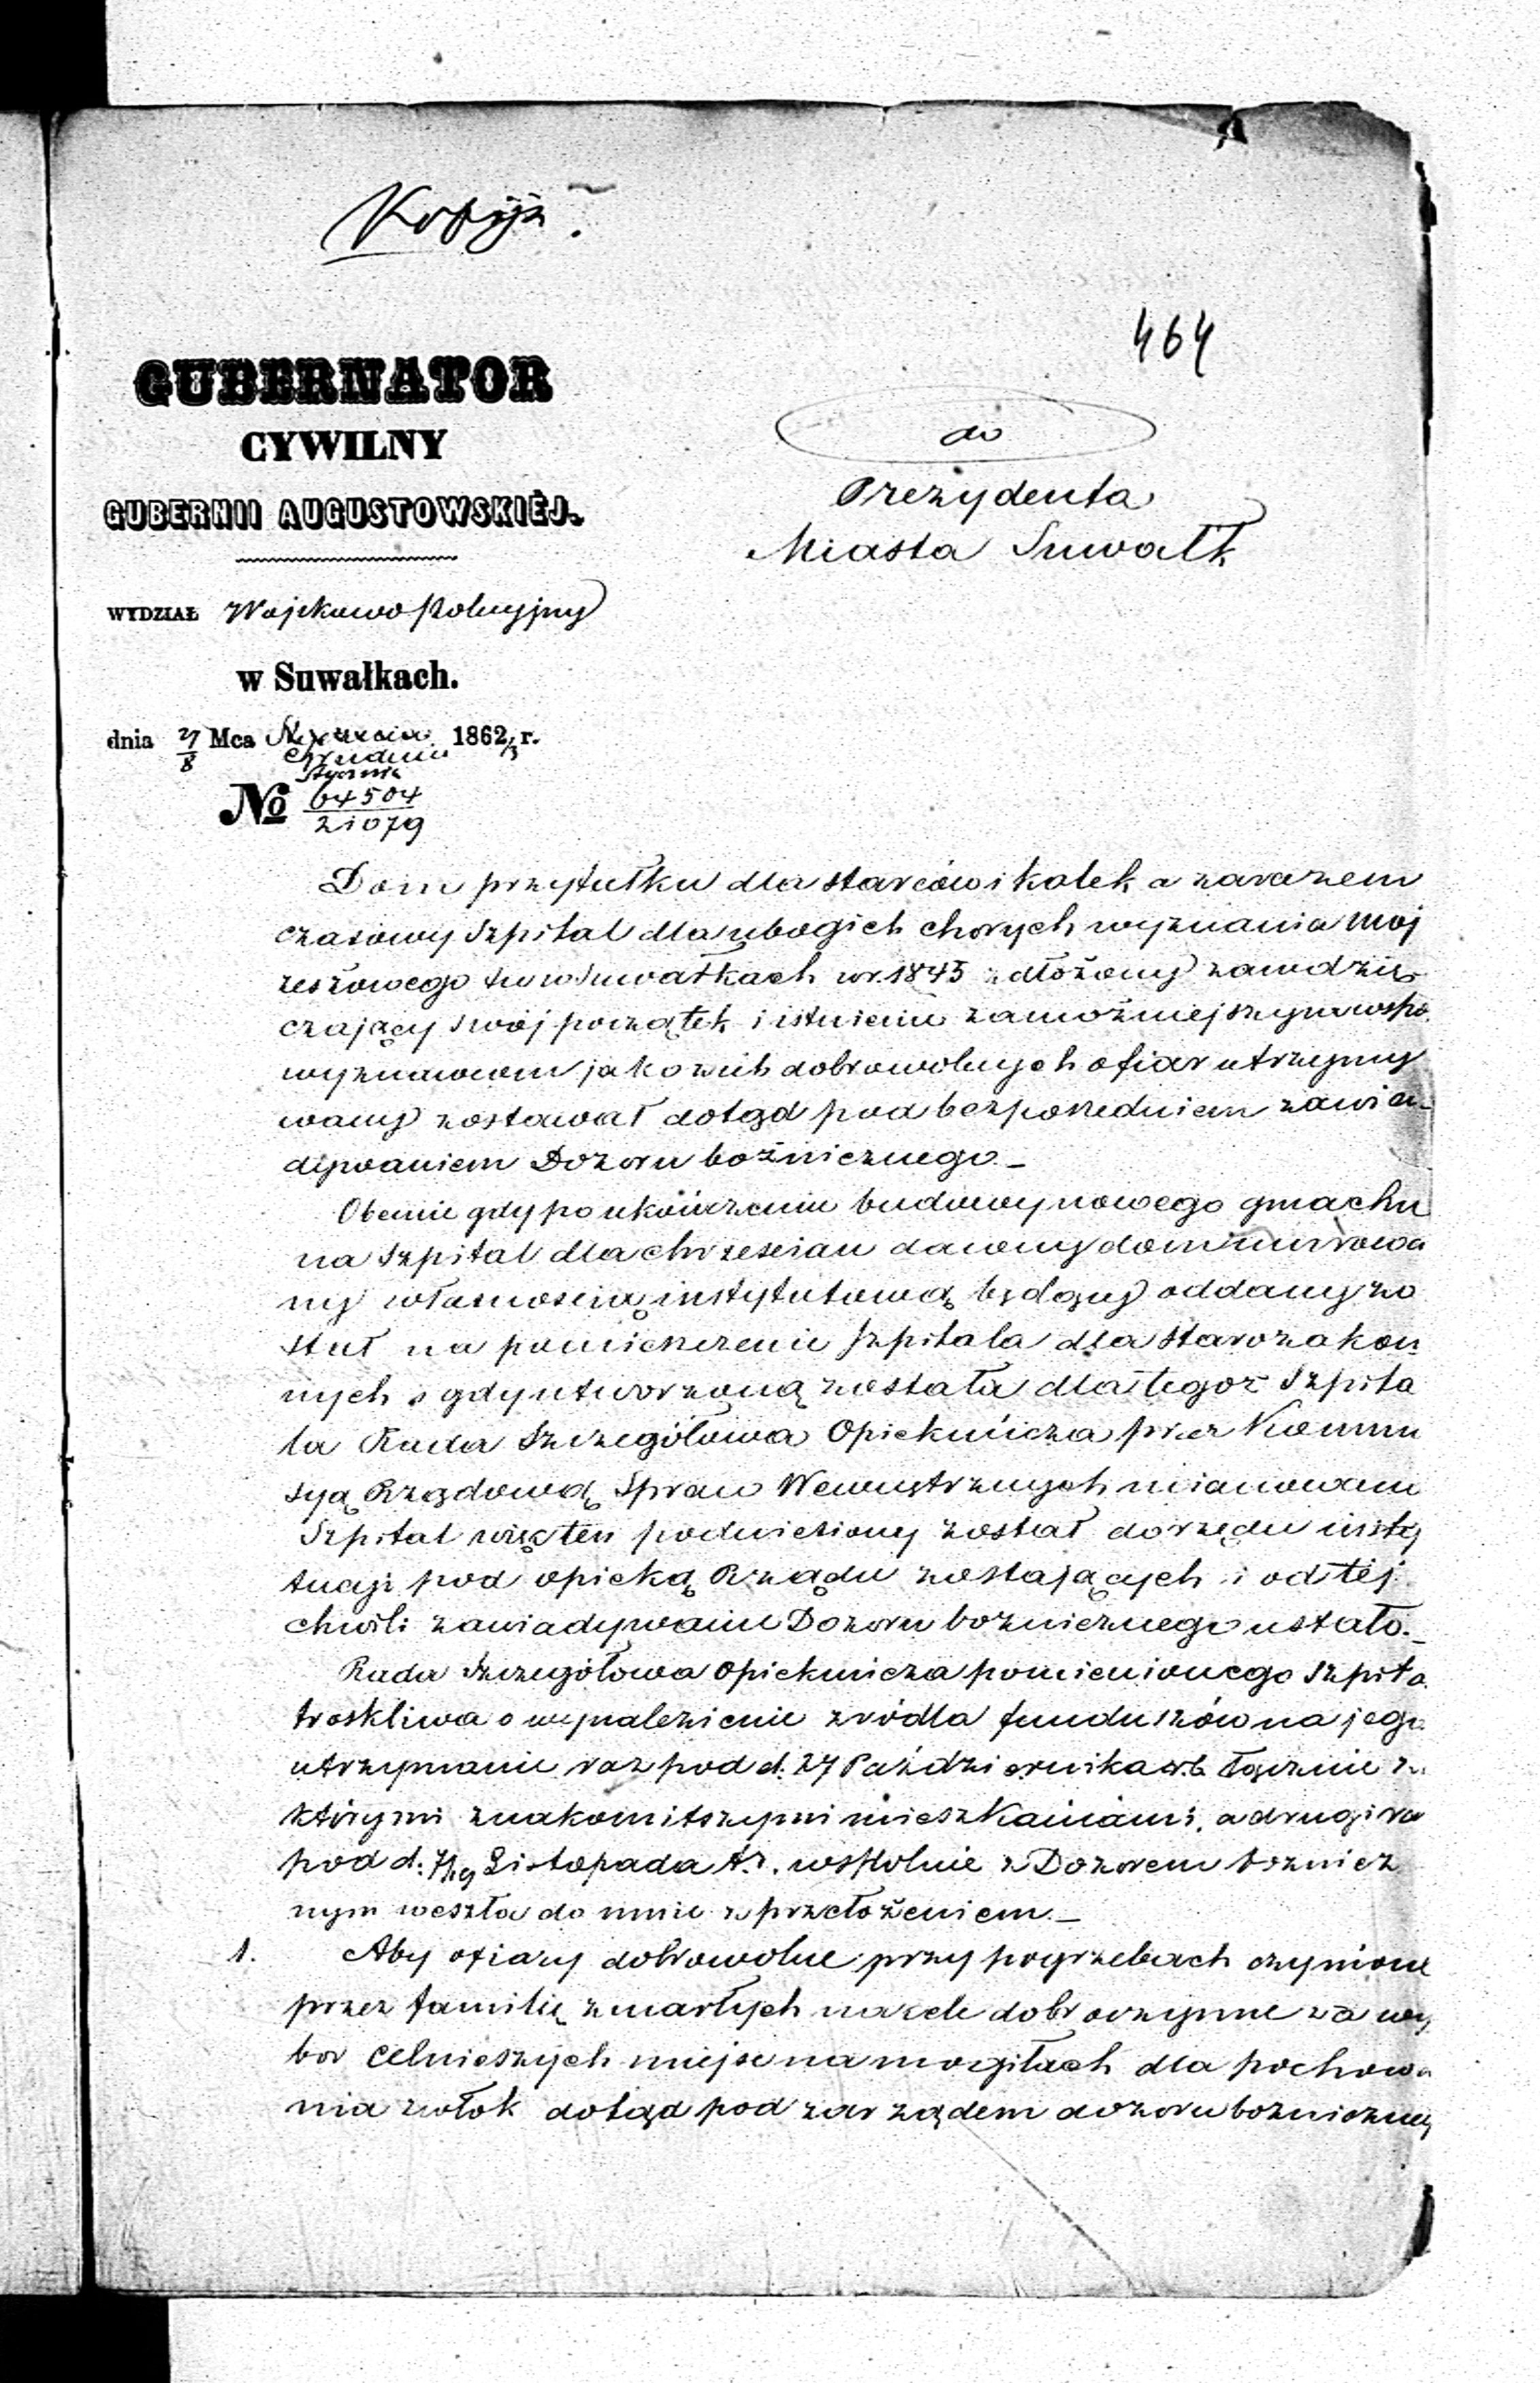 Kopija.
464
GUBERNATOR
CYWILNY
GUBERNII AUGUSTOWSKIÉJ.
do
Prezydenta
Miasta Suwałk
WYDZIAŁ Wojskowo Policyjny
w Suwałkach.
dnia 27/8 Mca Grudnia 1862/3 r.
Stycznia
No 64504/21079
Dom przytułku dla starców i kalek a zarazem
czasowy Szpital dla ubogich chorych wyznania moj
zeszowego tu w Suwałkach w r. 1845 założony zawdzię
czający swój początek i istnienie zamożniejszym wspó
wyznawcom jako z ich dobrowolnych ofiar utrzymy
wany zostawał dotąd pod bezpośredniem zawia-
dywaniem Dozoru bóżnicznego. –
Obecnie gdy po ukończeniu budowy nowego gmachu
na Szpital dla chrześcian dawny dom murowa
ny własnością instytutową będący oddany zo
stał na pomieszczenie Szpitala dla starozakon
nych i gdy utworzoną została dla tegoż Szpita
la Rada Szczegółowa Opiekuńcza przez Kommi
syą Rządową Spraw Wewnętrznych mianowana
Szpital więc ten podniesiony został do rzędu insty
tucji pod opieką Rządu zostających i od téj
chwili zawiadywanie Dozoru bożnicznego ustało. –
Rada Szczegółowa Opiekuńcza pomienionego Szpita
troskliwa o wynalezienie źródła funduszów na jego
utrzymanie raz pod d. 27 Października r.b. łącznie z
którymi znakomitszymi mieszkańcami, a drugi raz
pod d: 7/19 Listopada t.r. wspólnie z Dozorem bożnicz
nym weszła do mnie z przełożeniem. –
1. Aby ofiary dobrowolne przy pogrzebach czynione
przez familię zmarłych na cele dobroczynne za wy
bor celniejszych miejsc na mogiłach dla pochowa
nia zwłok dotąd pod zarządem dozoru bożniczneg